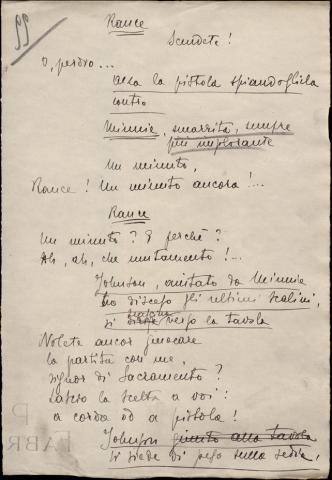 99
Rance
Scendete!
O, perdio...
alza la pistola spianandogliela
contro
Minnie, smarrita, sempre
più implorante
Un minuto,
Rance! Un minuto ancora!...
Rance
Un minuto? E perchè?
Ah, ah, che mutamento!...
Johnson, aiutato da Minnie
ha disceso gli ultimi scalini,
si verso la tavola
Volete ancor giuocare
la partita con me,
signor di Sacramento?
Lascio la scelta a voi:
a corda od a pistola!
Johnson giunto alla tavola
si siede di peso sulla sedia,
P
FABR